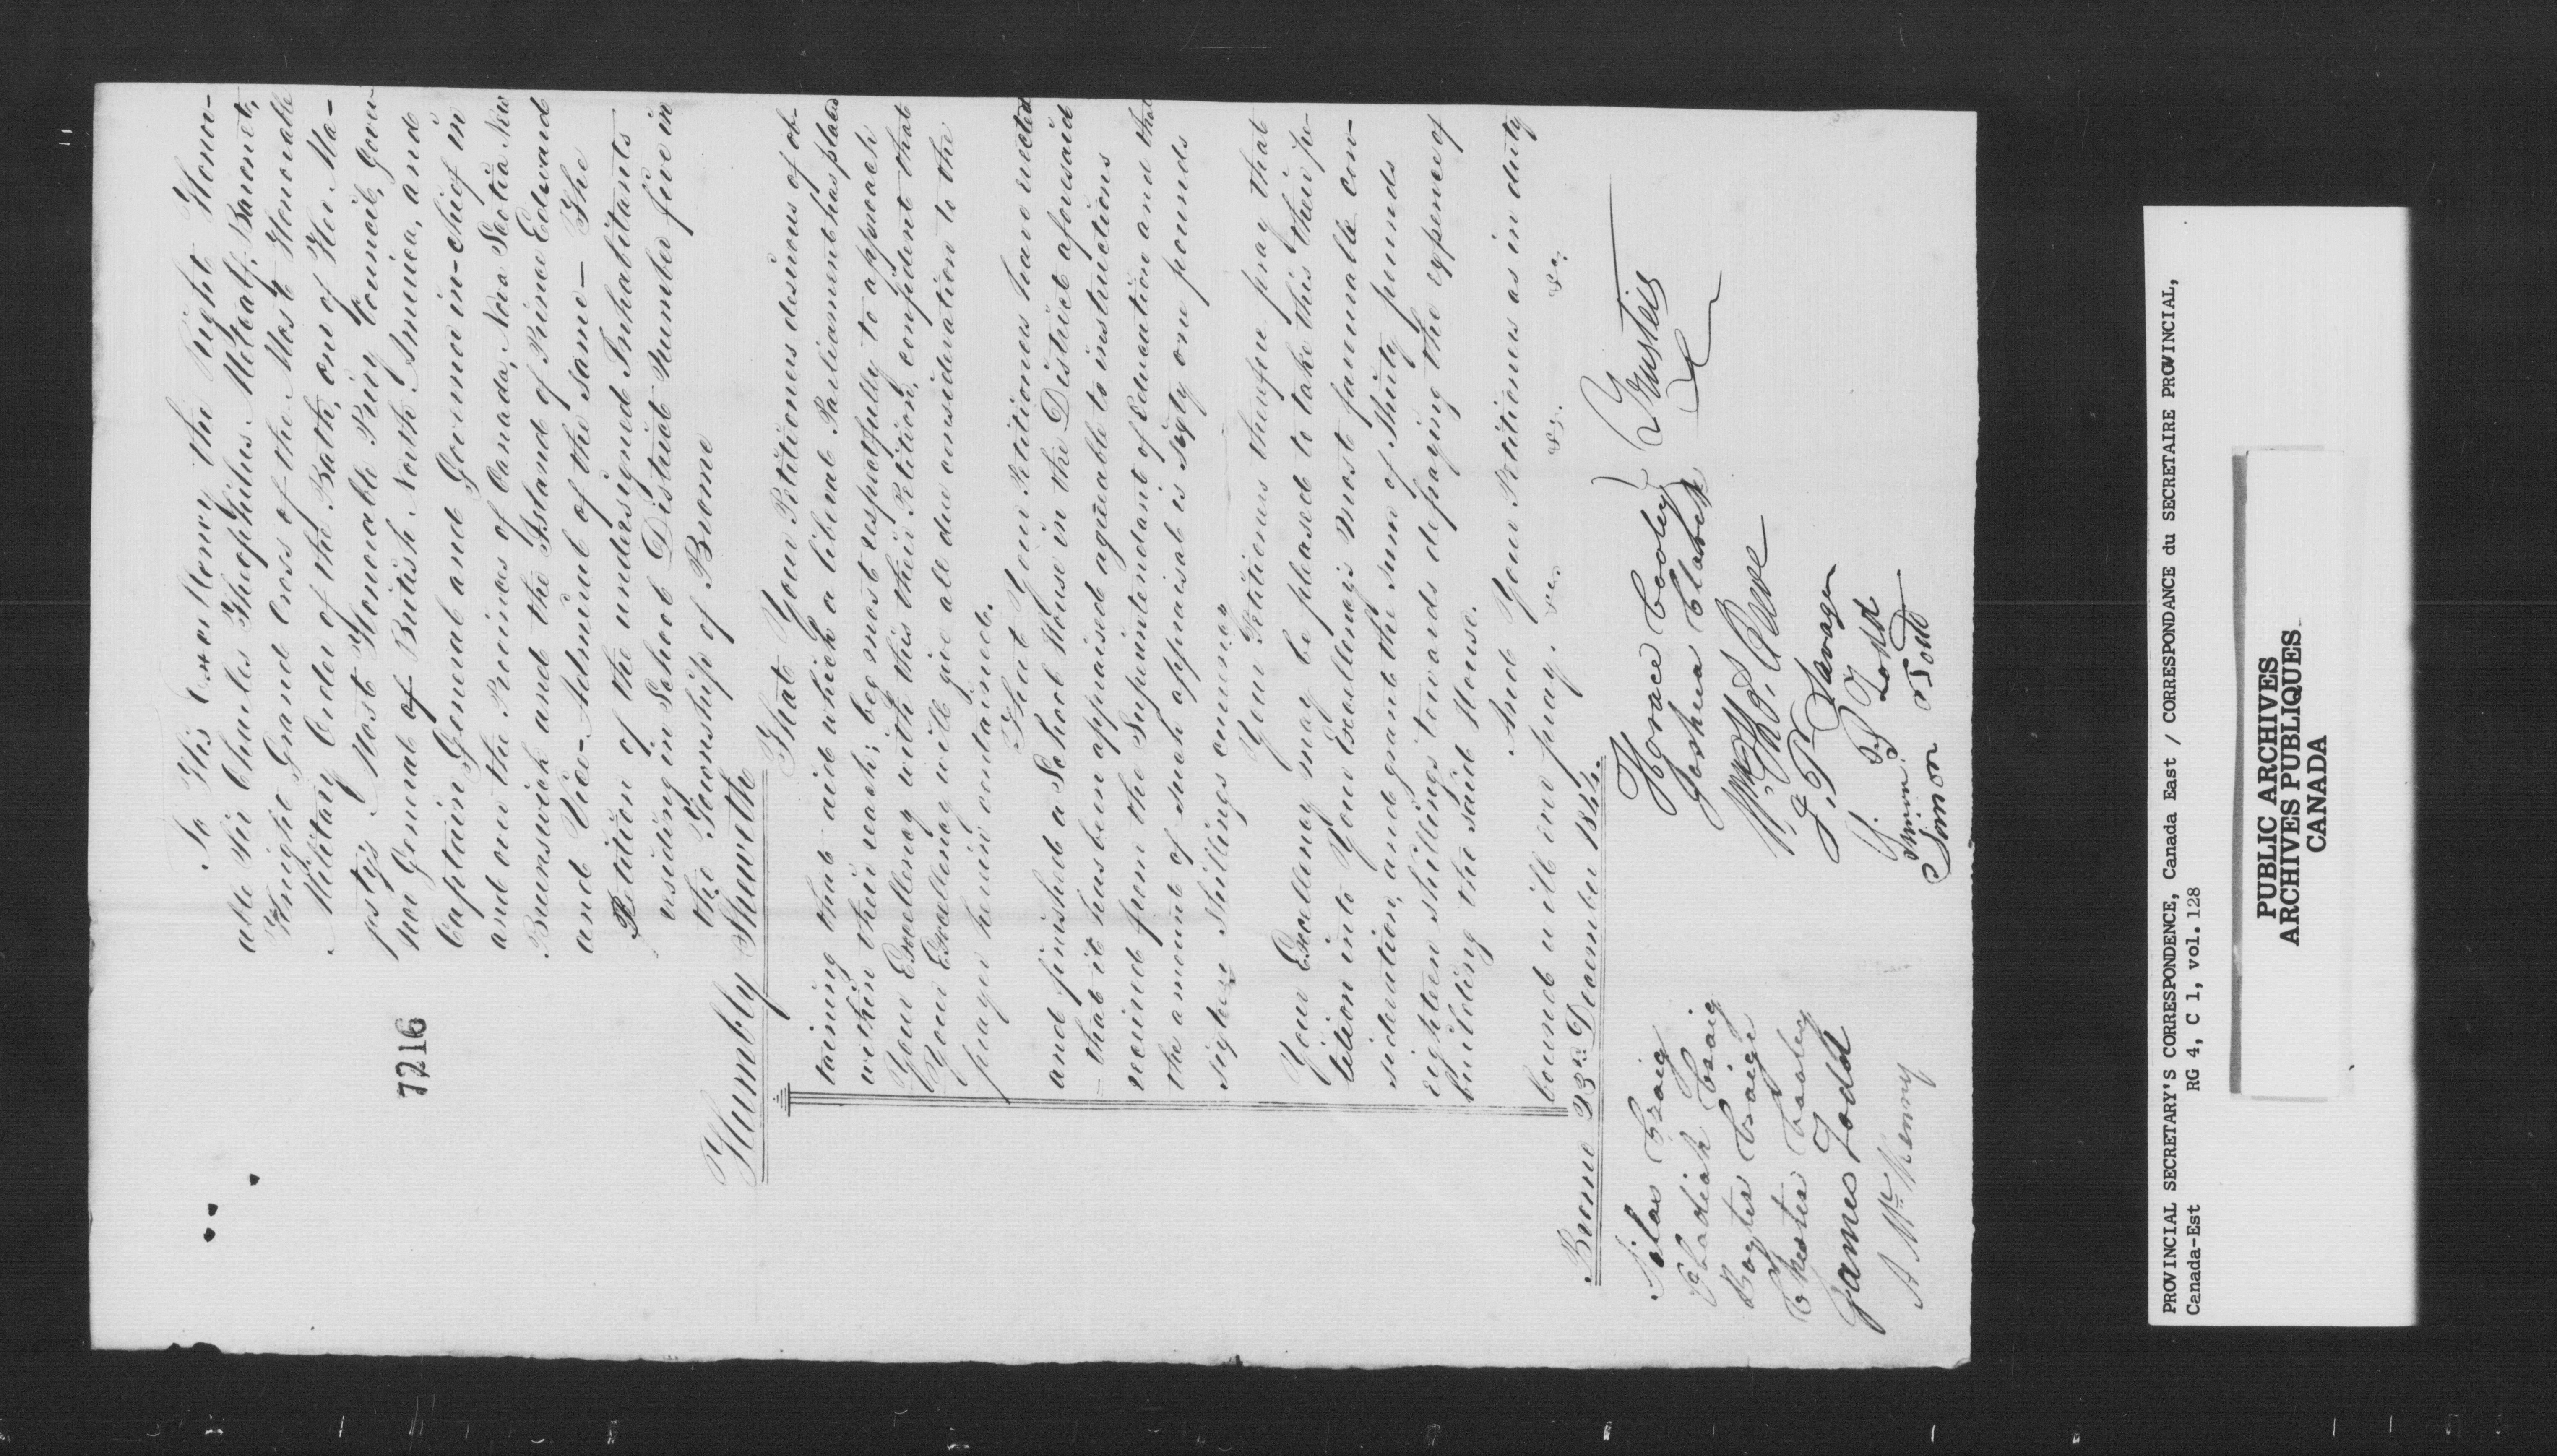 7216
To His Excellency the Right Honor-
able Sir Charles Theophilus Metcalf, Baronet,
Knight Grand Cross of the Most Honorable
Military Order of the Bath, one of Her Ma-
jesty's Most Honorable Privy Council, Gover-
nor General of British North America, and
Captain General and Governor in-chief in
and over the Provinces of Canada, Nova Scotia New
Brunswick and the Island of Prince Edward
and Vice-Admiral of the same— The
Petition of the undersigned Inhabitants
residing in School District Number five in
the Township of Brome
Humbly Sheweth
That Your Petitioners desirous of ob-
taining that aid which a liberal Parliament has placed
within their reach; beg most respectfully to approach
Your Excellency with this their Petition, confident that
Your Excellency will give all due consideration to the
prayer herein contained.
That Your Petitioners have erected
and finished a School House in the District aforesaid
— that it has been appraised agreeable to instructions
received from the Superintendant of Education and that
the amount of such appraisal is sixty one pounds
sixteen Shillings currency
Your Petitioners therefore pray that
Your Excellency may be pleased to take this their pe-
tition into Your Excellency's most favourable con-
sideration, and grant the sum of Thirty pounds
eighteen shillings towards defraying the expense of
building the said House.
And Your Petitioners as in duty
bound will ever pray. &c. &c. &c.
Brome 23rd December 1844.
Horace Cooley
Joshua Clark
Trustees
Wm
Thos. Reeve
J. P. Savage
G. Todd
Simon
Silas Craig
Obadiah Craig
Baxter Craige
Chester Cooley
James Todd
A McKenny
PROVINCIAL SECRETARY'S CORRESPONDENCE, Canada East / CORRESPONDANCE du SECRETAIRE PROVINCIAL,
Canada-Est RG 4, C 1, vol. 128
PUBLIC ARCHIVES
ARCHIVES PUBLIQUES
CANADA